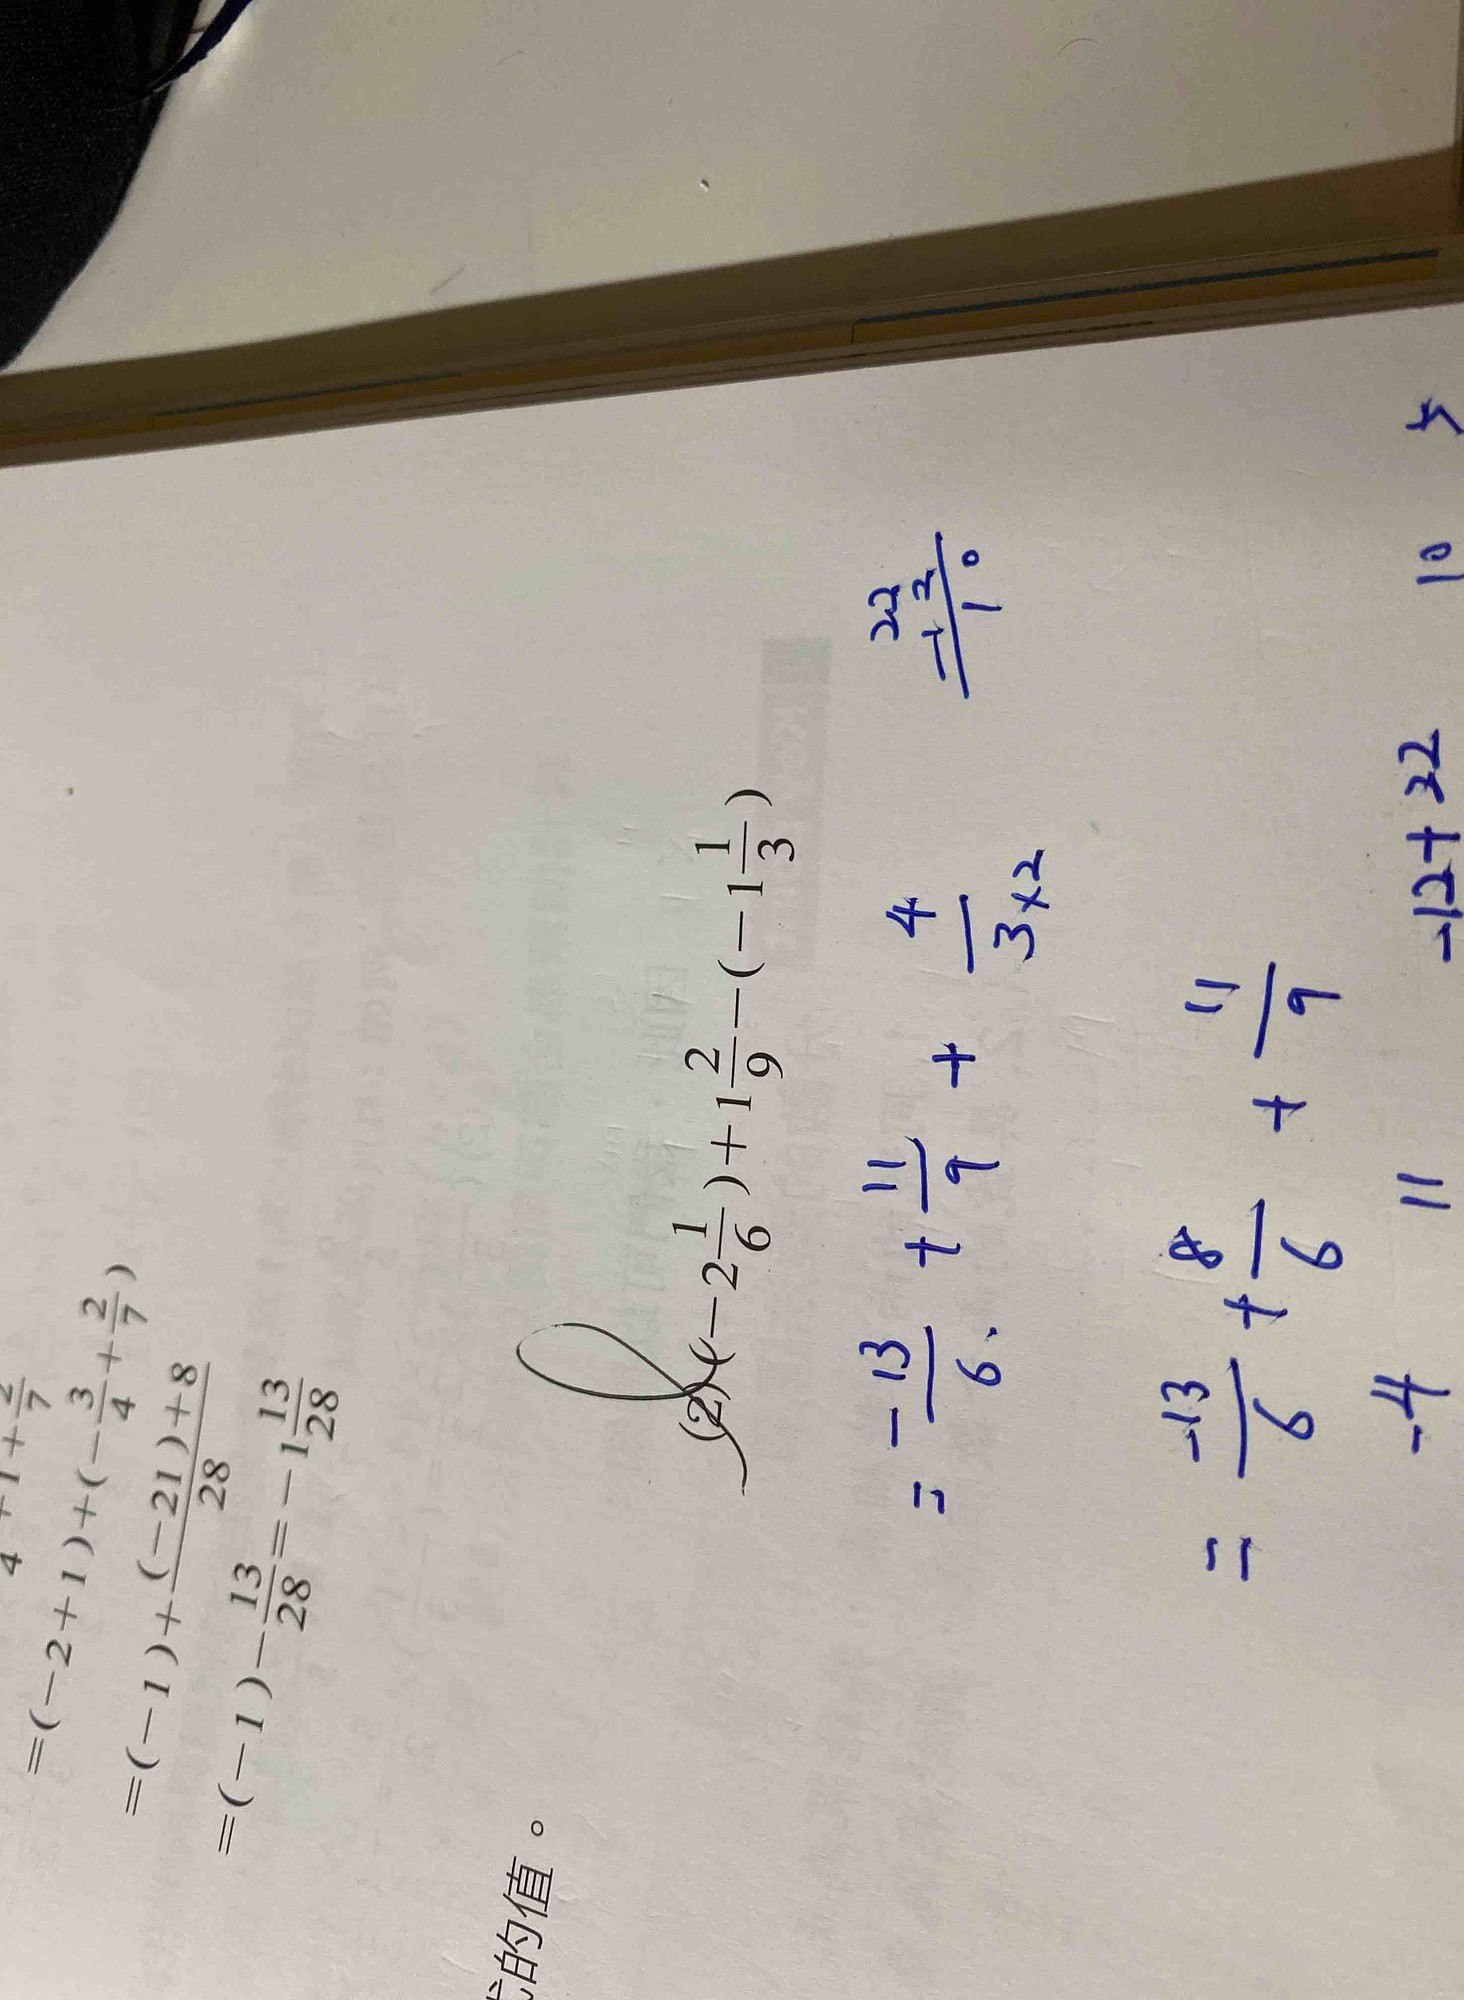 =(-2+1)+(-\frac{3}{4}+\frac{2}{7})
=(-1)+\frac{(-21)+8}{28}
=(-1)-\frac{13}{28}=-1\frac{13}{28}
的值。
(2)(-2\frac{1}{6})+1\frac{2}{9}-(-1\frac{1}{3})
=-\frac{13}{6}+\frac{11}{9}+\frac{4}{3×2}
22
-12
10
=\frac{-13}{6}+\frac{8}{6}+\frac{11}{9}
-4 11 -12+22 10 5